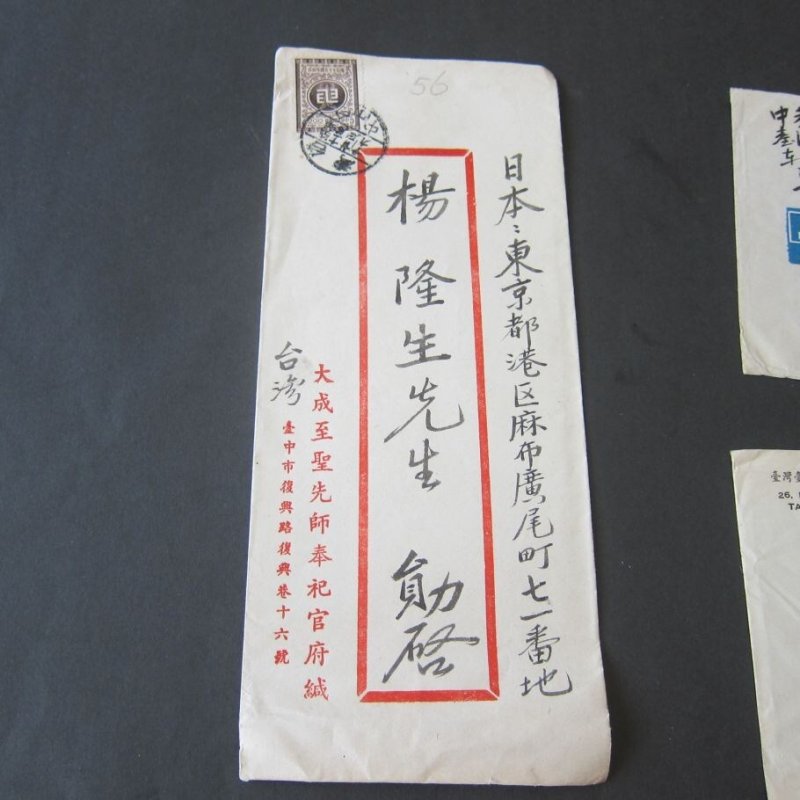 56
日本、東京都港区麻布廣尾町七一番地
楊隆生先生 勛啓
大成至聖先師奉祀官府緘
臺中市復興路復興巷十六號
台湾
臺灣
26,
TA